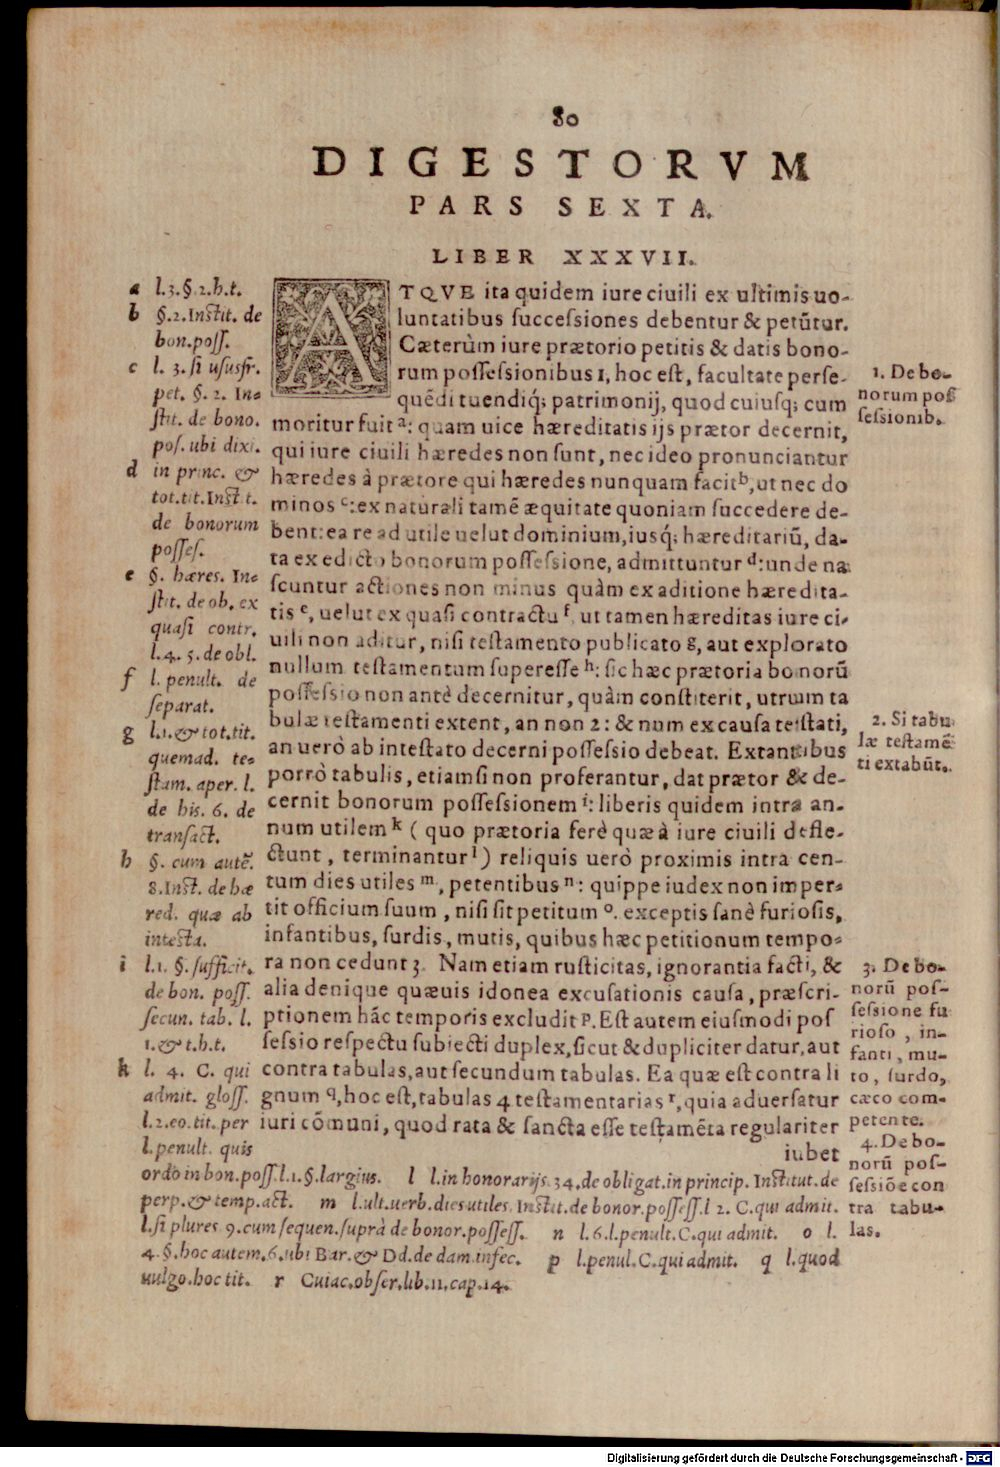 80
DIGESTORVM
PARS SEXTA.
LIBER XXXVII.
ATQVE ita quidem iure ciuili ex ultimis uo-
luntatibus successiones debentur & petũtur.
Cæterùm iure prætorio petitis & datis bono-
rum possessionibus 1, hoc est, facultate perse-
quẽdi tuendiq́; patrimonij, quod cuiusq; cum
moritur fuit a: quam uice hæreditatis ijs prætor decernit,
qui iure ciuili hæredes non sunt, nec ideo pronunciantur
hæredes à prætore qui hæredes nunquam facit b, ut nec do
minos c: ex naturali tamẽ æquitate quoniam succedere de-
bent: ea re ad utile uelut dominium, iusq́; hæreditariũ, da-
ta ex edicto bonorum possessione, admittuntur d: unde na
scuntur actiones non minus quàm ex aditione hæredita-
tis e, uelut ex quasi contractu f, ut tamen hæreditas iure ci-
uili non aditur, nisi testamento publicato g, aut explorato
nullum testamentum superesse h: sic hæc prætoria bonorũ
possessio non antè decernitur, quàm constiterit, utrum ta
bulæ testamenti extent, an non 2: & num ex causa testati,
an uerò ab intestato decerni possessio debeat. Extantibus
porrò tabulis, etiamsi non proferantur, dat prætor & de-
cernit bonorum possessionem i: liberis quidem intra an-
num utilem k (quo prætoria ferè quæ à iure ciuili defle-
ctunt, terminantur l) reliquis uerò proximis intra cen-
tum dies utiles m, petentibus n: quippe iudex non imper-
tit officium suum, nisi sit petitum o. exceptis sanè furiosis,
infantibus, surdis, mutis, quibus hæc petitionum tempo-
ra non cedunt 3. Nam etiam rusticitas, ignorantia facti, &
alia denique quæuis idonea excusationis causa, præscri-
ptionem hãc temporis excludit p. Est autem eiusmodi pos
sessio respectu subiecti duplex, sicut & dupliciter datur, aut
contra tabulas, aut secundum tabulas. Ea quæ est contra li
gnum q, hoc est, tabulas 4 testamentarias r, quia aduersatur
iuri cõmuni, quod rata & sancta esse testamẽta regulariter
iubet
a l.3.§.2.h.t.
b §.2.Instit. de
bon.poss.
c l. 3. si ususfr.
pet. §. 2. In-
stit. de bono.
pos. ubi dixi.
d in princ. &
tot.tit.Instit.
de bonorum
posses.
e §. hæres. In-
stit. de ob. ex
quasi contr.
l.4. 5. de obl.
f l. penult. de
separat.
g l.1.& tot.tit.
quemad. te-
stam. aper. l.
de his. 6. de
transact.
h §. cum autẽ.
8.Inst. de hæ
red. quæ ab
intesta.
i l.1. §. sufficit.
de bon. poss.
secun. tab. l.
1.& t.h.t.
k l. 4. C. qui
admit. gloss.
l.2.eo.tit. per
l.penult. quis
ordo in bon.poss.l.1.§.largius. l l.in honorarijs.34.de obligat.in princip. Institut.de
perp.& temp.act. m l.ult.uerb.dies utiles.Instit.de bonor.possess.l 2. C.qui admit.
l.si plures 9.cum sequen.suprà de bonor.possess. n l.6.l.penult.C.qui admit. o l.
4.§.hoc autem.6.ubi Bar.& Dd.de dam.infec. p l.penul.C.qui admit. q l.quod
uulgo.hoc tit. r Cuiac.obser.lib.11.cap.14.
1. De bo-
norum pos
sessionib.
2. Si tabu
læ testamẽ
ti extabũt.
3. De bo-
norũ pos-
sessione fu
rioso, in-
fanti, mu-
to, surdo,
cæco com-
petente.
4. De bo-
norũ pos-
sessiõe con
tra tabu-
las.
Digitalisierung gefördert durch die Deutsche Forschungsgemeinschaft - DFG